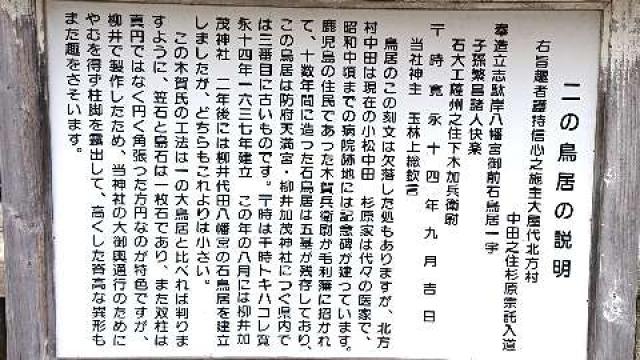 二の鳥居の説明
右旨趣者護持信心之施主大屋代北方村
中田之住杉原宗託入道
奉造立志駄岸八幡宮御前石鳥居一宇
子孫繁昌諸人快楽
石大工薩州之住下木加兵衛尉
干時寛永十四年九月吉日
当社神主 玉林上総欽言
鳥居のこの刻文は欠落した処もありますが、北方
村中田は現在の小松中田 杉原家は代々の医家で、
昭和中頃までの病院跡地には記念碑が建っています。
鹿児島の住民であった木賀兵衛尉が毛利藩に招かれ
て、十数年間に造った石鳥居は五基が残存しており、
この鳥居は防府天満宮・柳井加茂神社につぐ県内で
は三番目に古いものです。干時は干時トキハコレ寛
永十四年一六三七年建立 この年の八月には柳井加
茂神社 二年後には柳井代田八幡宮の石鳥居を建立
しましたが、どちらもこれよりは小さい。
この木賀氏の工法は一の大鳥居と比べれば判りま
すように、笠石と島石は一枚石であり、また双柱は
真円ではなく円く角張った方円なのが特色ですが、
柳井で製作したため、当神社の大御輿通行のために
やむを得ず柱脚を露出して、高くした脊高な異形も
また趣をさそいます。